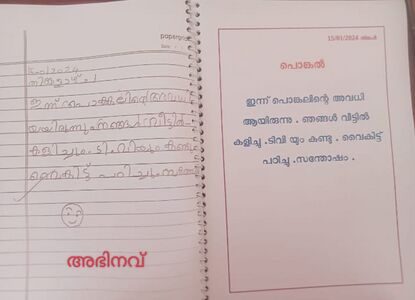 paperg
15/01/2024
തിങ്കളാഴ്ച
ഇന്ന് പൊങ്കലിന്റെ അവധി
യായിരുന്നു ഞങ്ങൾ വീട്ടിൽ
കളിച്ചും ടി.വിയും കണ്ടു
വൈകിട്ട് പഠിച്ചും
അഭിനവ്
15/01/2024 തിങ്കൾ
പൊങ്കൽ
ഇന്ന് പൊങ്കലിന്റെ അവധി
ആയിരുന്നു . ഞങ്ങൾ വീട്ടിൽ
കളിച്ചു .ടിവി യും കണ്ടു . വൈകിട്ട്
പഠിച്ചു .സന്തോഷം .